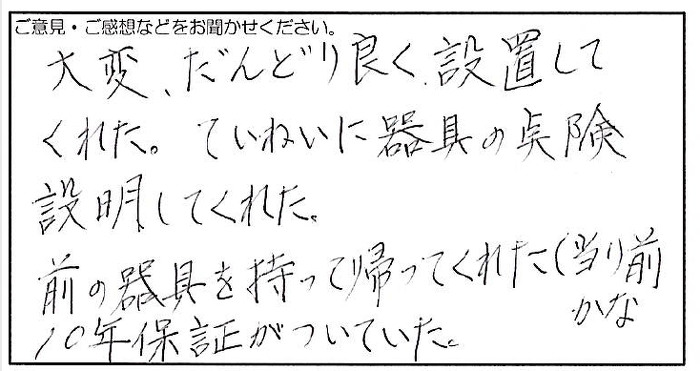 ご意見・ご感想などをお聞かせください。
大変、だんどり良く、設置して
くれた。ていねいに器具の点険
説明してくれた。
前の器具を持って帰ってくれた(当り前
かな
10年保証がついていた。